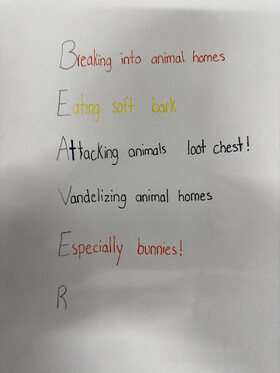 Breaking into animal homes
Eating soft bark
Attacking animals loot chest!
Vandelizing animal homes
Especially bunnies!
R